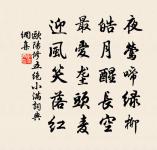 夜莺啼绿柳
皓月醒长空
最爱垄头麦
迎风笑落红
欧阳修五绝小满词典
网集